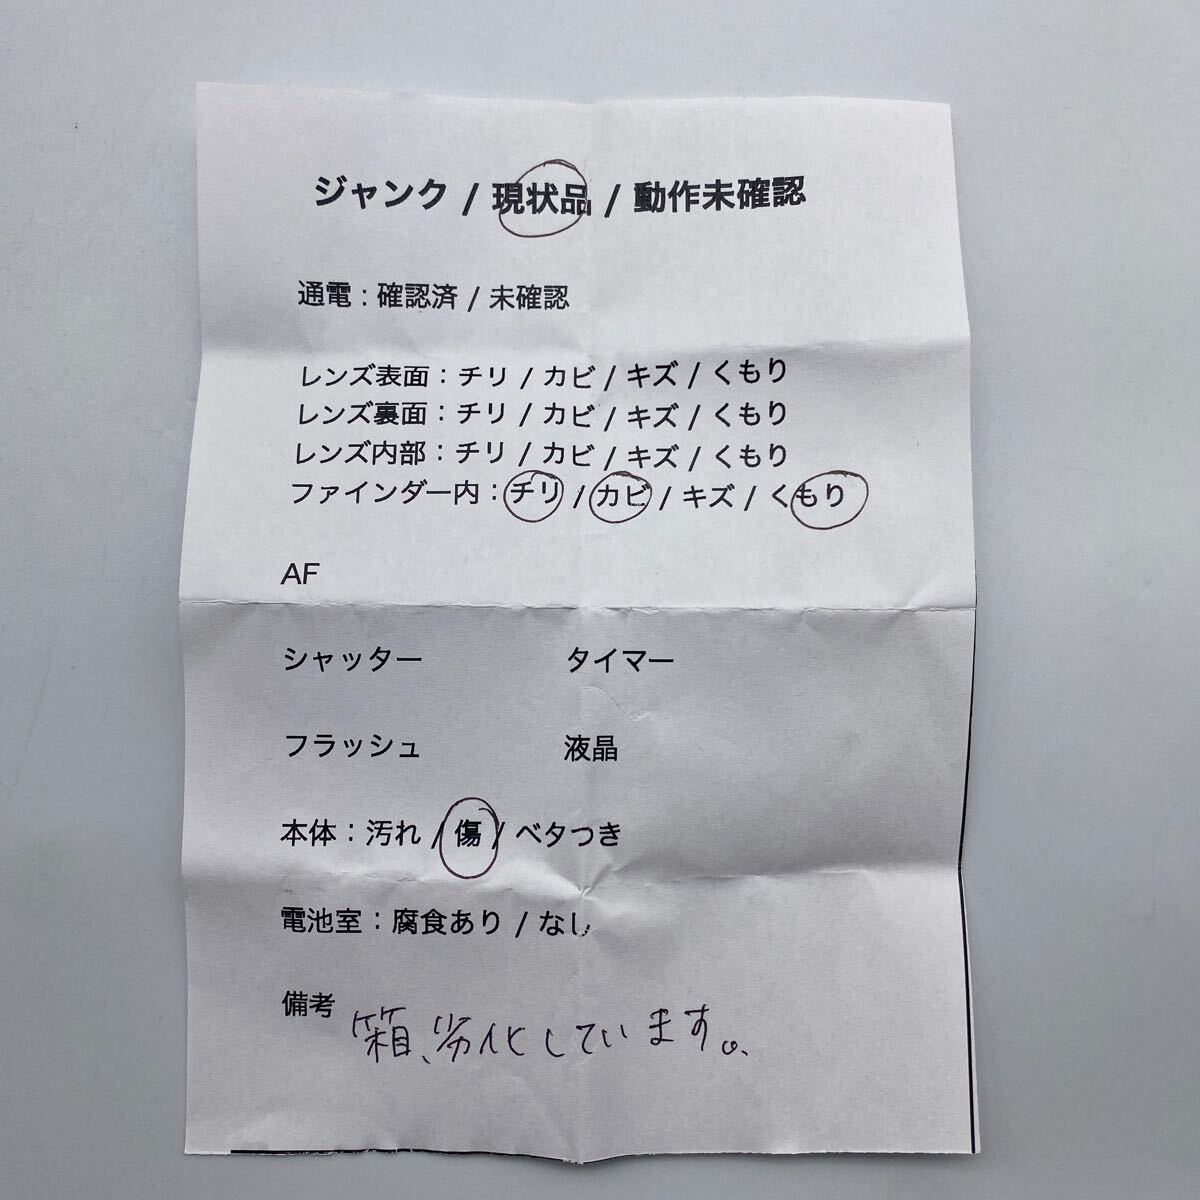 ジャンク / 現状品 / 動作未確認
通電：確認済 / 未確認
レンズ表面：チリ / カビ / キズ / くもり
レンズ裏面：チリ / カビ / キズ / くもり
レンズ内部：チリ / カビ / キズ / くもり
ファインダー内：チリ / カビ / キズ / くもり
AF
シャッター　タイマー
フラッシュ　液晶
本体：汚れ / 傷 / ベタつき
電池室：腐食あり / なし
備考 箱、劣化しています。